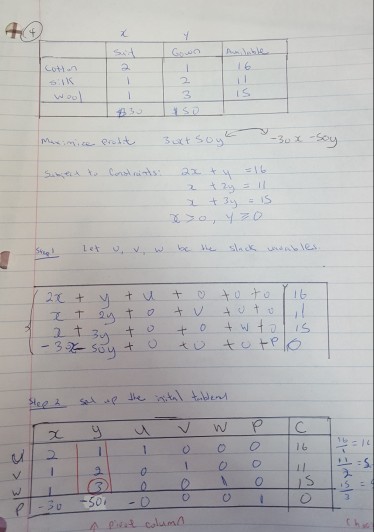 4
x y
Suit Gown Available
Cotton 2 1 16
Silk 1 2 11
Wool 1 3 15
$30 $50
Maximize Profit 30x + 50y -30x -50y
Subject to Constraints: 2x + y = 16
x + 2y = 11
x + 3y = 15
x > 0, y ≥ 0
Step 1 Let u, v, w be the slack variables.
2x + y + u + 0 + 0 + 0 16
x + 2y + 0 + v + 0 + 0 11
x + 3y + 0 + 0 + w + 0 15
-30x - 50y + 0 + 0 + 0 + P 0
Step 2 Set up the initial tableau
x y u v w P C
u 2 1 1 0 0 0 16 16/1 = 16
v 1 2 0 1 0 0 11 11/2 = 5.
w 1 3 0 0 1 0 15 15/3 = 5
P -30 -50 -0 0 0 1 0
↑ Pivot column